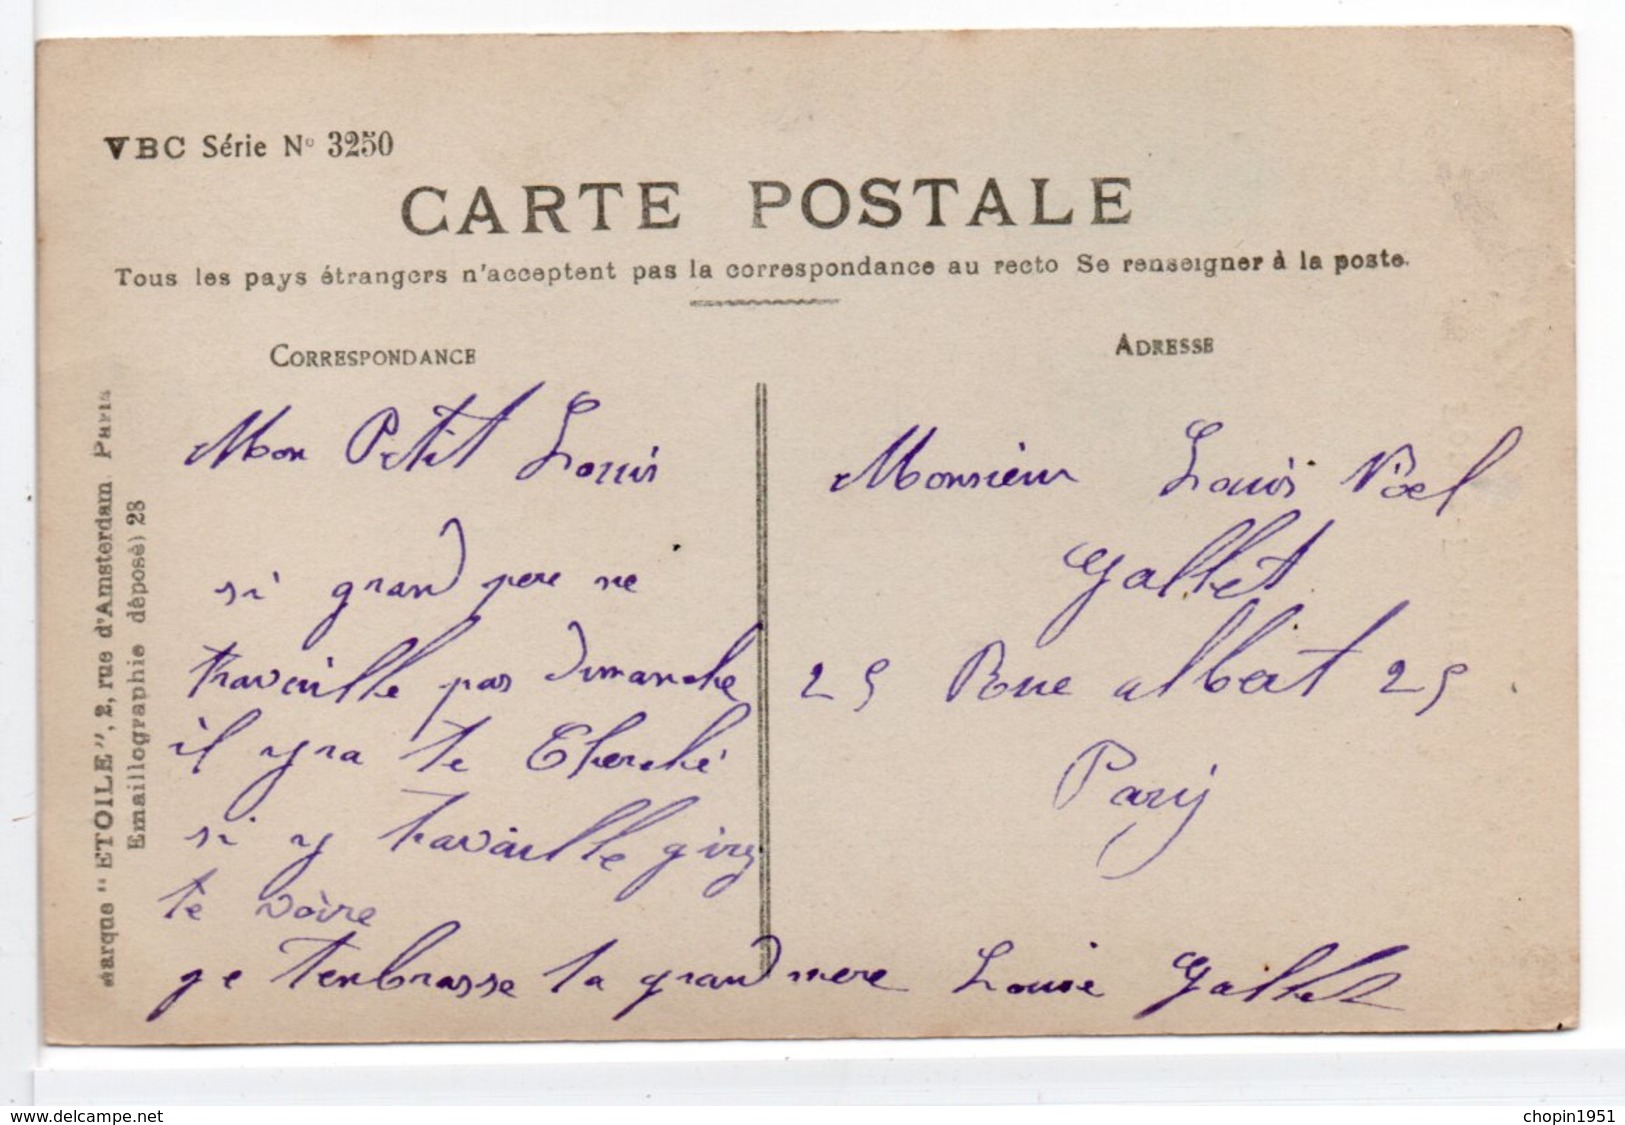 VBC Série N° 3250
CARTE POSTALE
Tous les pays étrangers n'acceptent pas la correspondance au recto Se renseigner à la poste.
CORRESPONDANCE
Mon Petit Louis
si grand pere ne
travaille pas Dimanche
il yra te Cherché
si y travaille girey
te voire
ge tenbrasse ta grand mere Louise Gallet
ADRESSE
Monsieur Louis Noel
Gallet
25 Rue albert 25
Paris
Marque "ETOILE", 2, rue d'Amsterdam Paris
Emaillographie déposé) 28
www.delcampe.net
chopin1951